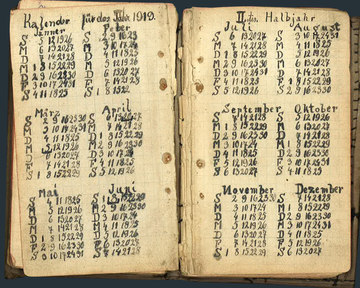 Kalender für das Jahr 1919.
Jänner Feber
S 5 12 19 26 S 2 9 16 23
M 6 13 20 27 M 3 10 17 24
D 7 14 21 28 D 4 11 18 25
M 1 8 15 22 29 M 5 12 19 26
D 2 9 16 23 30 D 6 13 20 27
F 3 10 17 24 31 F 7 14 21 28
S 4 11 18 25 S 1 8 15 22
März April
S 2 9 16 23 30 S 6 13 20 27
M 3 10 17 24 31 M 7 14 21 28
D 4 11 18 25 D 1 8 15 22 29
M 5 12 19 26 M 2 9 16 23 30
D 6 13 20 27 D 3 10 17 24
F 7 14 21 28 F 4 11 18 25
S 1 8 15 22 29 S 5 12 19 26
Mai Juni
S 4 11 18 25 S 1 8 15 22 29
M 5 12 19 26 M 2 9 16 23 30
D 6 13 20 27 D 3 10 17 24
M 7 14 21 28 M 4 11 18 25
D 1 8 15 22 29 D 5 12 19 26
F 2 9 16 23 30 F 6 13 20 27
S 3 10 17 24 31 S 7 14 21 28
II. Halbjahr
Juli August
S 6 13 20 27 S 3 10 17 24 31
M 7 14 21 28 M 4 11 18 25
D 1 8 15 22 29 D 5 12 19 26
M 2 9 16 23 30 M 6 13 20 27
D 3 10 17 24 31 D 7 14 21 28
F 4 11 18 25 F 1 8 15 22 29
S 5 12 19 26 S 2 9 16 23 30
September Oktober
S 7 14 21 28 S 5 12 19 26
M 1 8 15 22 29 M 6 13 20 27
D 2 9 16 23 30 D 7 14 21 28
M 3 10 17 24 M 1 8 15 22 29
D 4 11 18 25 D 2 9 16 23 30
F 5 12 19 26 F 3 10 17 24 31
S 6 13 20 27 S 4 11 18 25
November Dezember
S 2 9 16 23 30 S 7 14 21 28
M 3 10 17 24 M 1 8 15 22 29
D 4 11 18 25 D 2 9 16 23 30
M 5 12 19 26 M 3 10 17 24 31
D 6 13 20 27 D 4 11 18 25
F 7 14 21 28 F 5 12 19 26
S 1 8 15 22 29 S 6 13 20 27